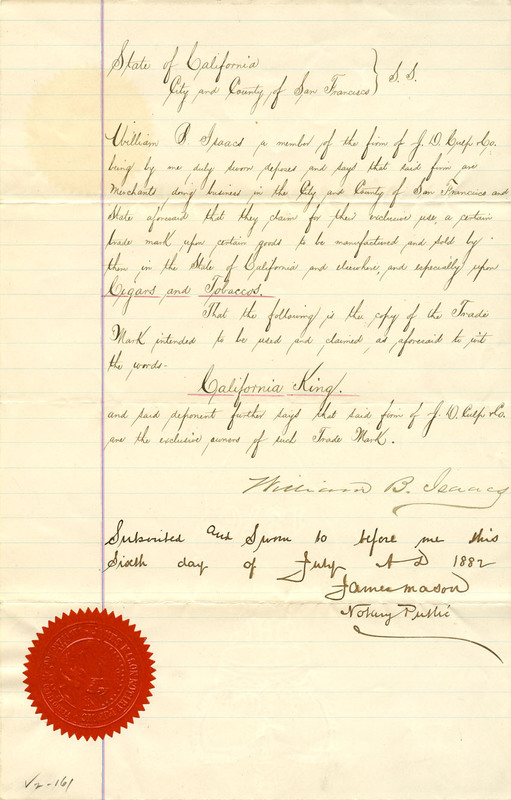 State of California
City and County of San Francisco } S.S.
William B. Isaacs a member of the firm of J. D. Culp & Co.
being by me duly sworn deposes and says that said firm are
Merchants doing business in the City and County of San Francisco and
State aforesaid that they claim for their exclusive use, a certain
trade mark upon certain goods to be manufactured and sold by
them in the State of California and elsewhere, and especially upon
Cigars and Tobaccos.
That the following is the copy of the Trade
Mark intended to be used and claimed, as aforesaid to wit
the words-
California King.
and said deponent further says that said firm of J. D. Culp & Co.
are the exclusive owners of such Trade Mark.
William B. Isaacs
Subscribed and Sworn to before me this
Sixth day of July A D 1882
James Mason
Notary Public
V2-161